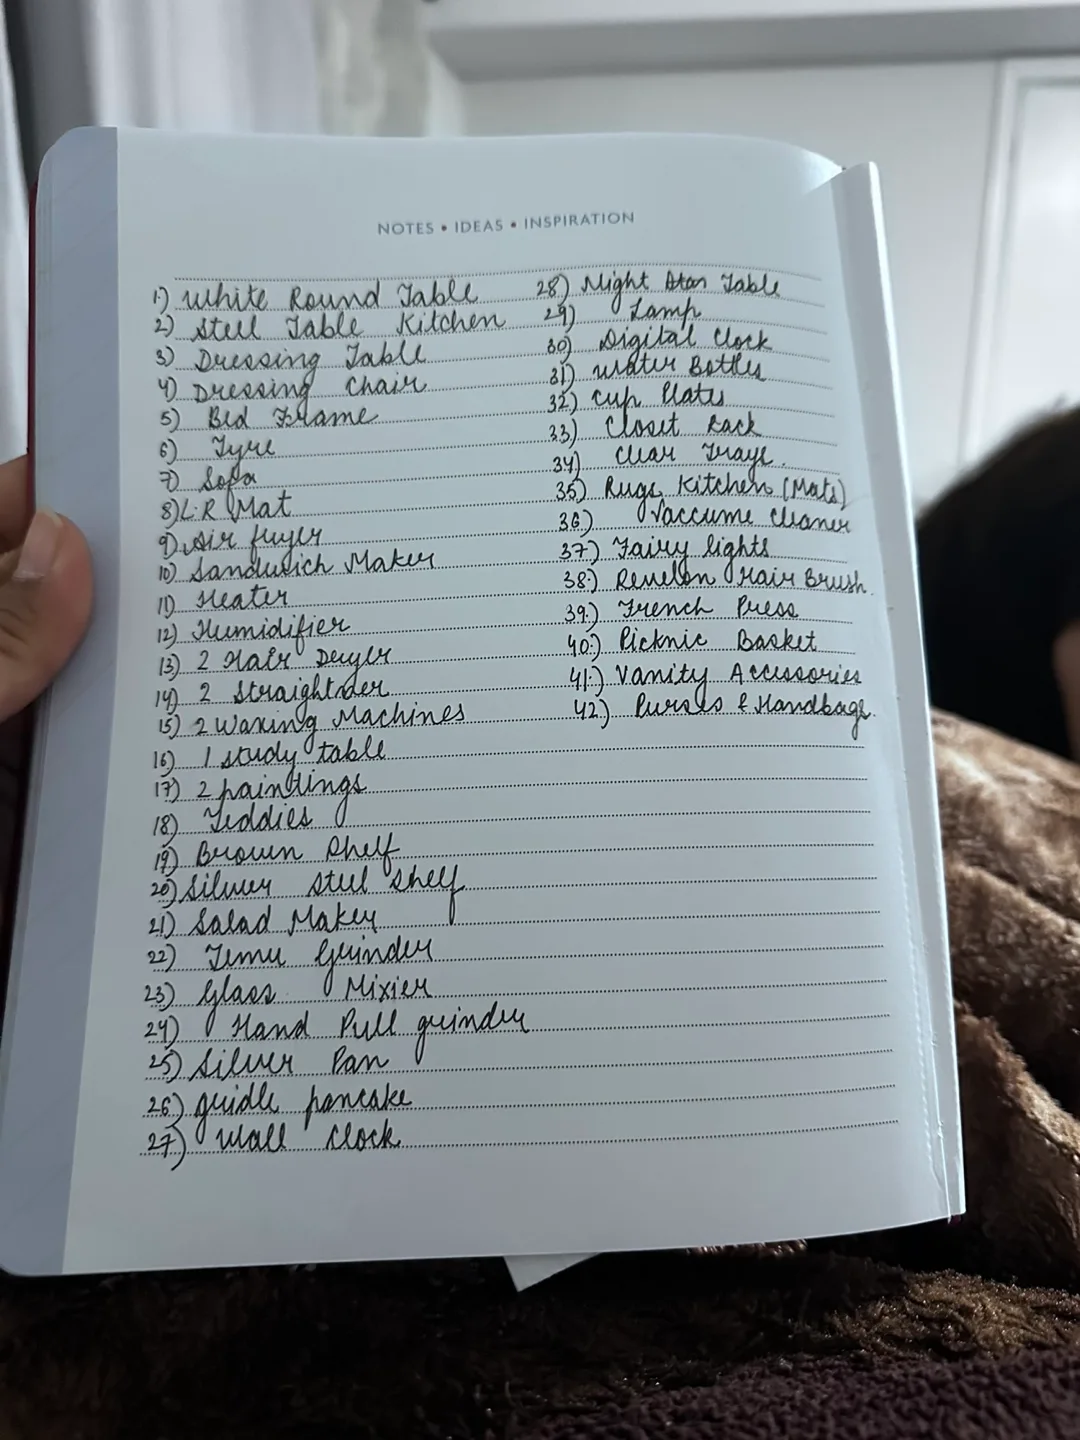 NOTES • IDEAS • INSPIRATION
1.) White Round Table
2) Steel Table Kitchen
3) Dressing Table
4) Dressing Chair
5) Bed Frame
6) Tyre
7) Sofa
8) L.R Mat
9) Air fryer
10) Sandwich Maker
11) Heater
12) Humidifier
13) 2 Hair Dryer
14) 2 Straightner
15) 2 Waxing Machines
16) 1 study table
17) 2 paintings
18) Teddies
19) Brown Shelf
20) Silver steel shelf
21) Salad Maker
22) Temu Grinder
23) Glass Mixier
24) Hand Pull grinder
25) Silver Pan
26) gridle pancake
27) Wall Clock
28) Night Table
29) Lamp
30) Digital Clock
31) Water Bottles
32) Cup Plates
33) Closet Rack
34) Clear Trays.
35) Rugs Kitchen (Mats)
36) Vaccume Cleaner
37) Fairy lights
38.) Revelon Hair Brush.
39.) French Press
40.) Picknic Basket
41.) Vanity Accessories
42) Purses & Handbags.